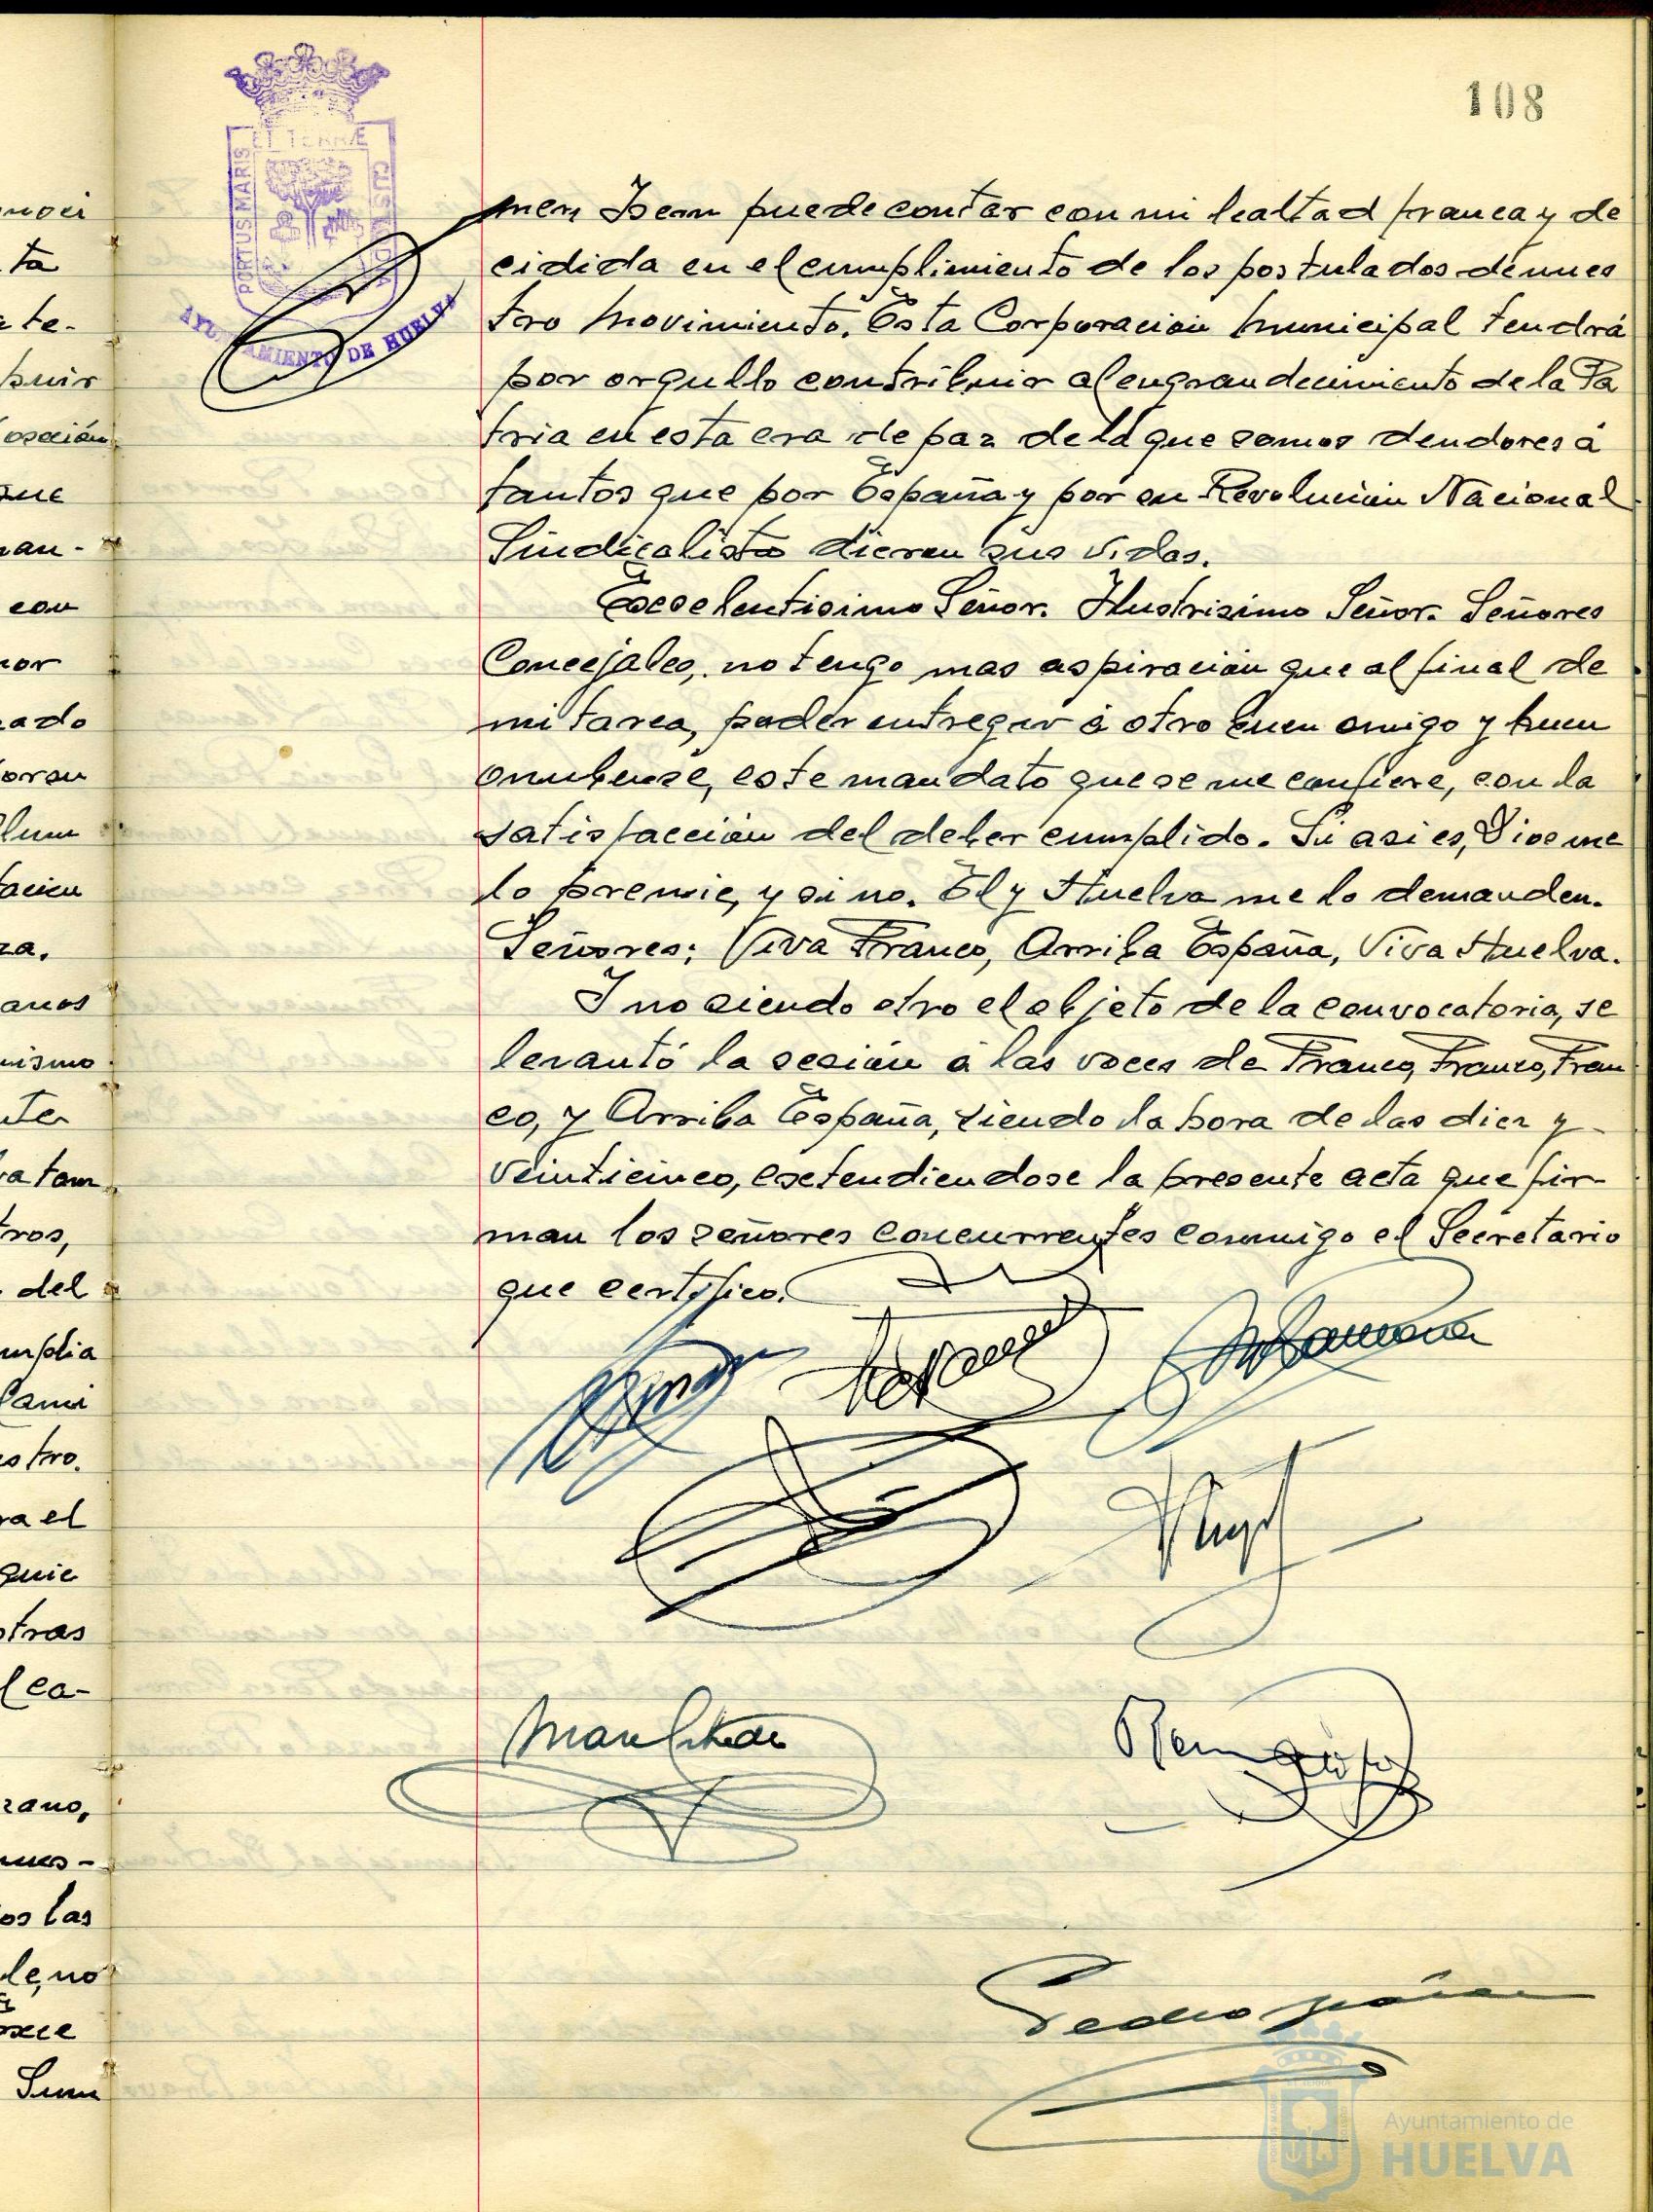 108
PORTUS MARIS
ET TERRÆ
CUSTODIA
AYUNTAMIENTO DE HUELVA
men Isern puede contar con mi lealtad franca y de
cidida en el cumplimiento de los postulados de nues
tro Movimiento. Esta Corporación Municipal tendrá
por orgullo contribuir al engrandecimiento de la Pa
tria en esta era de paz de la que somos deudores á
tantos que por España y por su Revolución Nacional
Sindicalista dieron sus vidas.
Excelentisimo Señor. Ilustrisimo Señor. Señores
Concejales, no tengo mas aspiración que al final de
mi tarea, poder entregar á otro buen amigo y buen
onubense, este mandato que se me confiere, con la
satisfacción del deber cumplido. Si asi es, Dios me
lo premie, y si no. El y Huelva me lo demanden.
Señores; Viva Franco, Arriba España, Viva Huelva.
I no siendo otro el objeto de la convocatoria, se
levantó la sesión á las voces de Franco, Franco, Fran
co, y Arriba España, siendo la hora de las diez y
veinticinco, extendiendose la presente acta que fir-
man los señores concurrentes conmigo el Secretario
que certifico.
Pedro
Ayuntamiento de
HUELVA